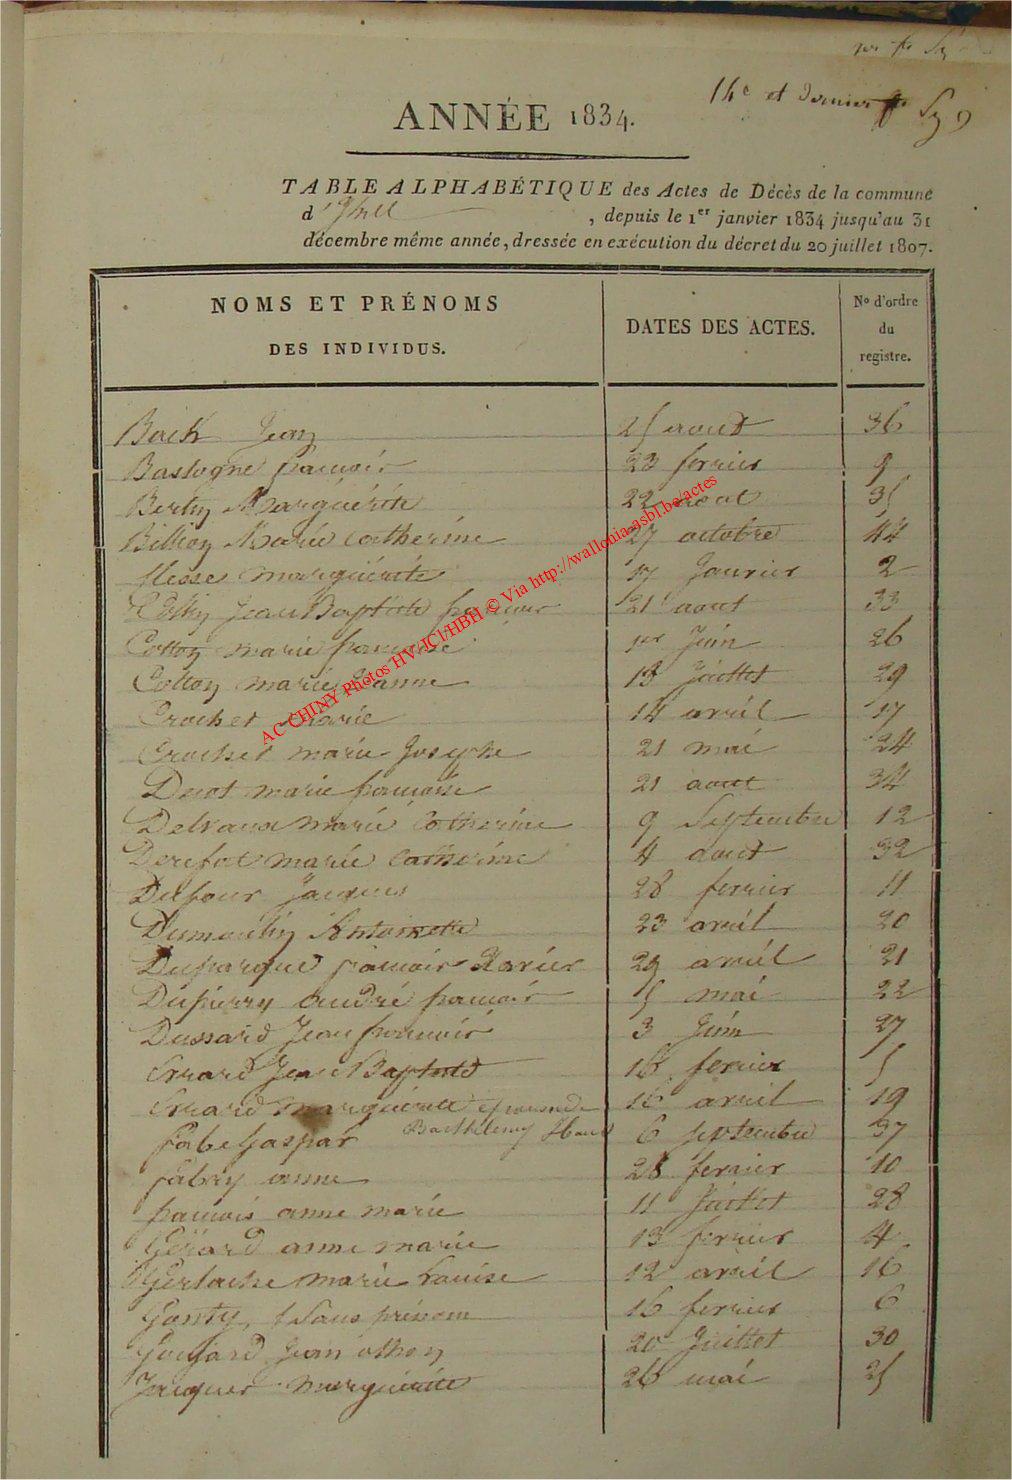 14e et dernier
ANNÉE 1834.
TABLE ALPHABÉTIQUE des Actes de Décès de la commune
d' , depuis le 1er janvier 1834 jusqu'au 31
décembre même année, dressée en exécution du décret du 20 juillet 1807.
NOMS ET PRÉNOMS DES INDIVIDUS. DATES DES ACTES. No d'ordre du registre.
Back Jean 25 aout 36
Bastogne francois 23 fevrier 9
Bertin Marguérite 22 aout 35
Billion Marie Catherine 27 octobre 44
Marguérite 17 Janvier 2
Jean Baptiste francois 21 aout 33
Cotton marie francoise 1er Juin 26
Cotton marie Jeanne 13 Juillet 29
Crochet Marie 14 avril 17
Crochet marie Josephe 21 mai 24
Ducot marie francoise 21 aout 34
Delvaux marie Catherine 9 Septembre 12
marie Catherine 4 aout 32
Dufour Jacques 28 fevrier 11
Dumoulin Antoinette 23 avril 20
Duparque francois Xavier 29 avril 21
Dupierry André francois 5 mai 22
Dussard Jean francois 3 Juin 27
Errard Jean Baptiste 16 fevrier 5
Errard marguerite epouse de 16 avril 19
Barthélemy
Fabe Gaspar 6 septembre 37
fabry anne 28 fevrier 10
francois anne marie 11 Juillet 28
Gérard anne marie 13 fevrier 4
Gerlache marie Louise 12 avril 16
Gonty, Sans prénom 16 fevrier 6
Goujard Jean othon 20 Juillet 30
Jacques Marguerite 26 mai 25
AC CHINY Photos HV-JCl/HBH © Via http://wallonia-asbl.be/actes